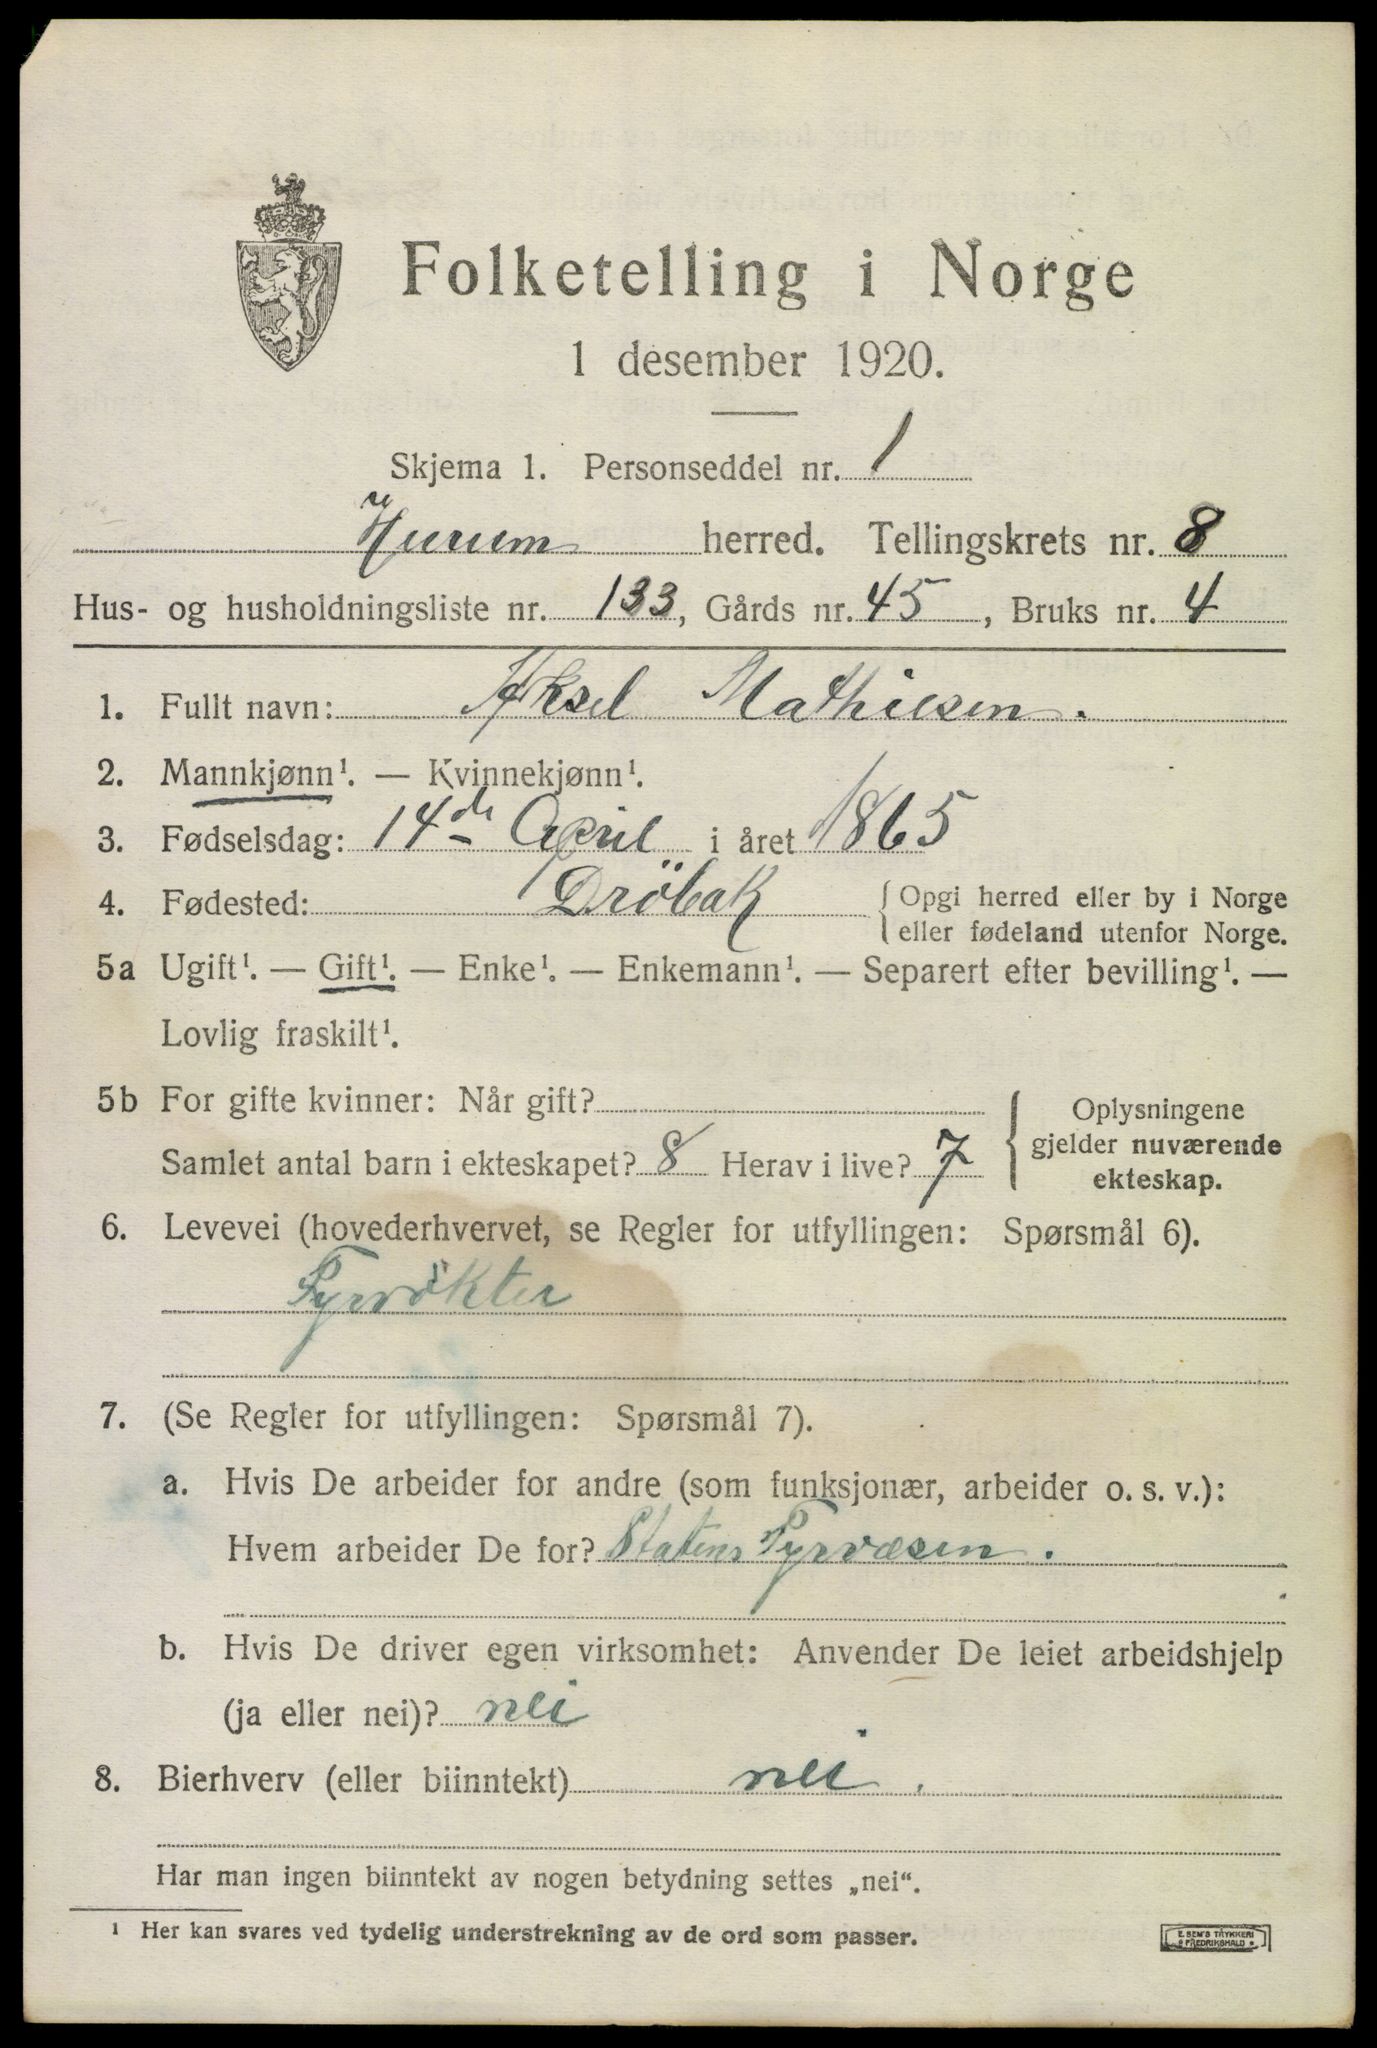 Folketelling i Norge
1 desember 1920.
Skjema 1. Personseddel nr. 1
Hurum herred. Tellingskrets nr. 8
Hus- og husholdningsliste nr. 133, Gårds nr. 45, Bruks nr. 4
1. Fullt navn: Aksel Mathiesen.
2. Mannkjønn¹. — Kvinnekjønn¹.
3. Fødselsdag: 14de April i året 1865
4. Fødested: Dröbak { Opgi herred eller by i Norge
eller fødeland utenfor Norge.
5a Ugift¹. — Gift¹. — Enke¹. — Enkemann¹. — Separert efter bevilling¹. —
Lovlig fraskilt¹.
5b For gifte kvinner: Når gift?
Samlet antal barn i ekteskapet? 8 Herav i live? 7
{ Oplysningene
gjelder nuværende
ekteskap.
6. Levevei (hovederhvervet, se Regler for utfyllingen: Spørsmål 6).
Fyrvökter
7. (Se Regler for utfyllingen: Spørsmål 7).
a. Hvis De arbeider for andre (som funksjonær, arbeider o. s. v.):
Hvem arbeider De for? Statens Fyrvæsen.
b. Hvis De driver egen virksomhet: Anvender De leiet arbeidshjelp
(ja eller nei)? nei
8. Bierhverv (eller biinntekt) nei.
Har man ingen biinntekt av nogen betydning settes „nei“.
¹ Her kan svares ved tydelig understrekning av de ord som passer.
E. SEM'S TRYKKERI
FREDRIKSHALD